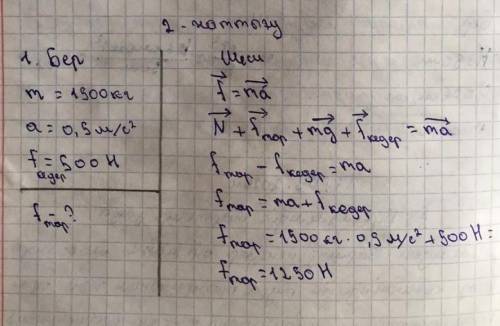 2 - жаттығу
1. Бер
m = 1500кг
a = 0,5 м/с²
f кедер = 500 Н
f тар - ?
Шешуі
f⃗ = ma⃗
N⃗ + f⃗ тар + mg⃗ + f⃗ кедер = ma⃗
f тар - f кедер = ma
f тар = ma + f кедер
f тар = 1500кг · 0,5 м/с² + 500 Н =
f тар = 1250 Н